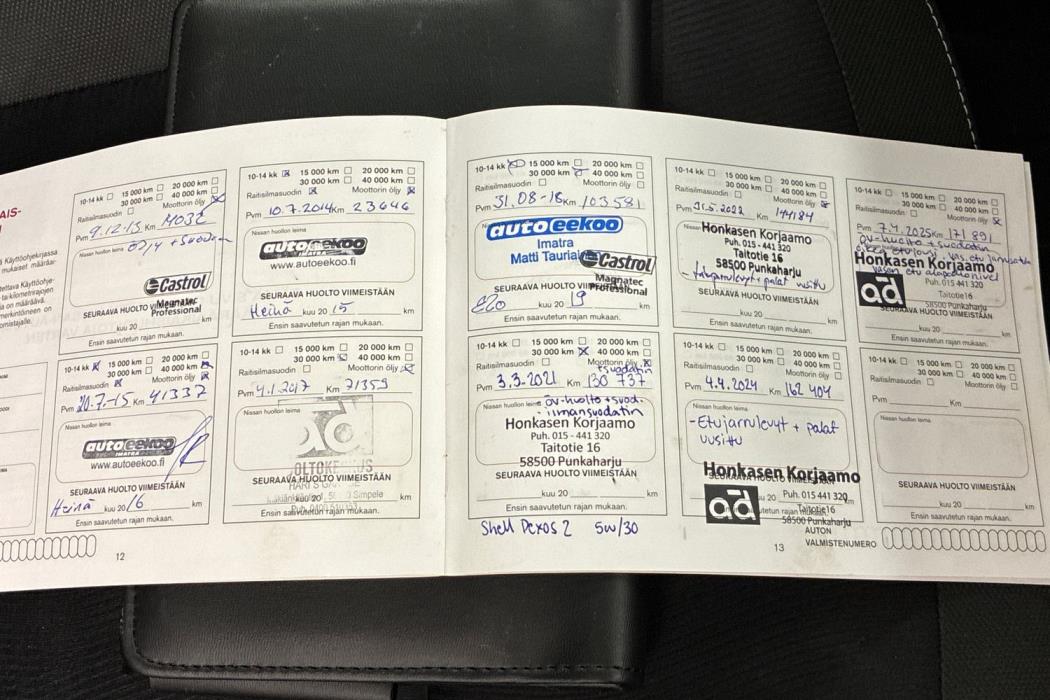 AIS-
Käyttöohjekirjassa
mukaiset määräai-
tettava Käyttöohje-
tai kilometrirajojen
ia on määräävä.
merkintöineen on
omistajalle.
10-14 kk 15 000 km 20 000 km
30 000 km 40 000 km
Raitisilmasuodin Moottorin öljy
Pvm 9.12.13 Km
Nissan huollon leima öljy + suodatin
Castrol
Magnatec
Professional
SEURAAVA HUOLTO VIIMEISTÄÄN
kuu 20 km
Ensin saavutetun rajan mukaan.
10-14 kk 15 000 km 20 000 km
30 000 km 40 000 km
Raitisilmasuodin Moottorin öljy
Pvm 20.7.-15 Km 41337
Nissan huollon leima
autoeekoo
IMATRA
www.autoeekoo.fi
SEURAAVA HUOLTO VIIMEISTÄÄN
Heinä kuu 20/6 km
Ensin saavutetun rajan mukaan.
10-14 kk 15 000 km 20 000 km
30 000 km 40 000 km
Raitisilmasuodin Moottorin öljy
Pvm 10.7.2014 Km 23646
Nissan huollon leima
autoeekoo
www.autoeekoo.fi
SEURAAVA HUOLTO VIIMEISTÄÄN
Heinä kuu 20 15 km
Ensin saavutetun rajan mukaan.
10-14 kk 15 000 km 20 000 km
30 000 km 40 000 km
Raitisilmasuodin Moottorin öljy
Pvm 4.1.2017 Km 71359
Nissan huollon leima
SEURAAVA HUOLTO VIIMEISTÄÄN
kuu 20 Simpele km
Ensin saavutetun rajan mukaan.
12
10-14 kk 15 000 km 20 000 km
30 000 km 40 000 km
Raitisilmasuodin Moottorin öljy
Pvm 31.08-18 Km 103581
autoeekoo
Imatra
Matti Taurial
Castrol
Magnatec
Professional
SEURAAVA HUOLTO VIIMEISTÄÄN
Elo kuu 20 19 km
Ensin saavutetun rajan mukaan.
10-14 kk 15 000 km 20 000 km
30 000 km 40 000 km
Raitisilmasuodin Moottorin öljy
+suodatin
Pvm 3.3.2021 Km 130 737
Nissan huollon leima öv-huolto + suod.
- ilmansuodatin
Honkasen Korjaamo
Puh. 015 - 441 320
Taitotie 16
58500 Punkaharju
SEURAAVA HUOLTO VIIMEISTÄÄN
kuu 20 km
Ensin saavutetun rajan mukaan.
Shell Dexos 2 5w/30
10-14 kk 15 000 km 20 000 km
30 000 km 40 000 km
Raitisilmasuodin Moottorin öljy
Pvm 31.5.2022 Km 144184
Nissan huollon leima
Honkasen Korjaamo
Puh. 015 - 441 320
Taitotie 16
58500 Punkaharju
- takajarrulevyt + palat uusittu
SEURAAVA HUOLTO VIIMEISTÄÄN
kuu 20 km
Ensin saavutetun rajan mukaan.
10-14 kk 15 000 km 20 000 km
30 000 km 40 000 km
Raitisilmasuodin Moottorin öljy
Pvm 4.4.2024 Km 162 404
Nissan huollon leima
- Etujarrulevyt + palat
uusittu
Honkasen Korjaamo
SEURAAVA HUOLTO VIIMEISTÄÄN
ad
Puh. 015 441 320
Taitotie 16
58500 Punkaharju
10-14 kk 15 000 km 20 000 km
30 000 km 40 000 km
Raitisilmasuodin Moottorin öljy
Pvm 7.4.2025 Km 171 891
öv-huolto + suodatin
oikea etujousi, vas. etu
vasen etu alapallonivel
Honkasen Korjaamo
ad
Puh. 015 441 320
Taitotie 16
58500 Punkaharju
SEURAAVA HUOLTO VIIMEISTÄÄN
kuu 20 km
Ensin saavutetun rajan mukaan.
10-14 kk 15 000 km 20 000 km
30 000 km 40 000 km
Raitisilmasuodin Moottorin öljy
Pvm Km
Nissan huollon leima
SEURAAVA HUOLTO VIIMEISTÄÄN
kuu 20 km
Ensin saavutetun rajan mukaan.
13
AUTON
VALMISTENUMERO